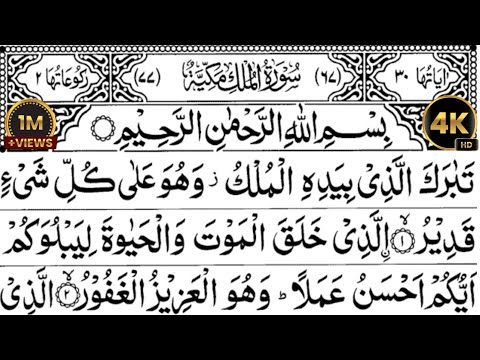 اٰيَاتُهَا ٣٠ (٦٧) سُوْرَةُ الْمُلْكِ مَكِّيَّةٌ (٧٧) رُكُوْعَاتُهَا ٢
1M
+VIEWS
بِسْمِ اللّٰهِ الرَّحْمٰنِ الرَّحِيْمِ
4K
HD
تَبٰرَكَ الَّذِیْ بِیَدِهِ الْمُلْكُ ؗ وَهُوَ عَلٰی كُلِّ شَیْءٍ
قَدِیْرُ ۙ﴿۱﴾ اۨلَّذِیْ خَلَقَ الْمَوْتَ وَالْحَیٰوةَ لِیَبْلُوَكُمْ
اَیُّكُمْ اَحْسَنُ عَمَلًا ؕ وَهُوَ الْعَزِیْزُ الْغَفُوْرُ ۙ﴿۲﴾ الَّذِیْ